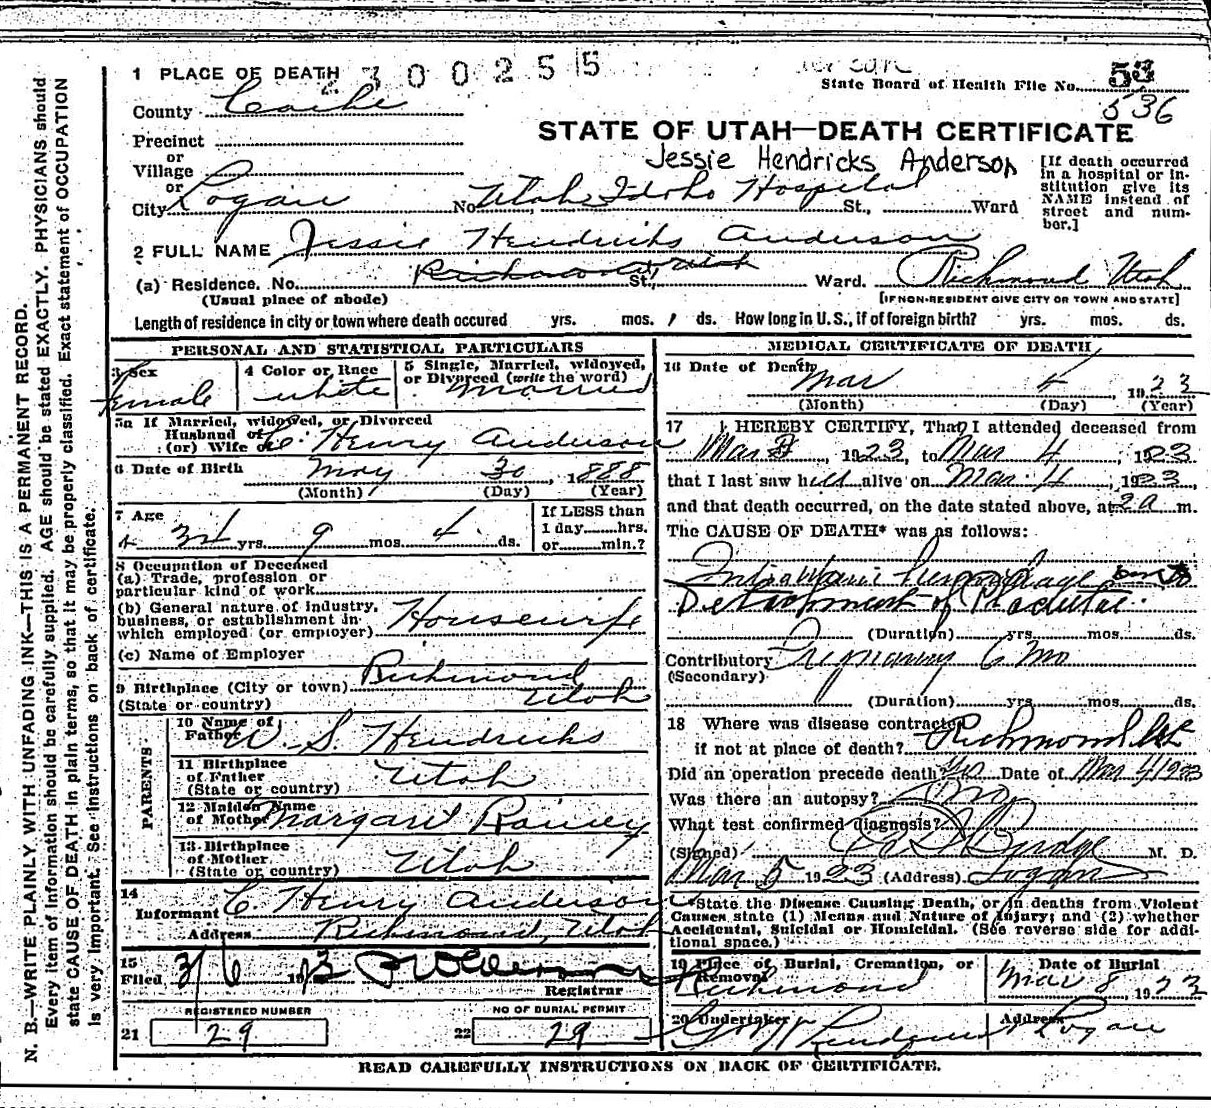 N. B.—WRITE PLAINLY WITH UNFADING INK—THIS IS A PERMANENT RECORD.
Every item of information should be carefully supplied. AGE should be stated EXACTLY. PHYSICIANS should
state CAUSE OF DEATH in plain terms, so that it may be properly classified. Exact statement of OCCUPATION
is very important. See instructions on back of certificate.
1 PLACE OF DEATH
2300255
State Board of Health File No. 53
536
County Cache
STATE OF UTAH—DEATH CERTIFICATE
Precinct
or
Village
or
City Logan No. Utah Idaho Hospital St., Ward
Jessie Hendricks Anderson
[If death occurred
in a hospital or in-
stitution give its
NAME instead of
street and num-
ber.]
2 FULL NAME Jessie Hendricks Anderson
(a) Residence. No. Richmond, Utah St., Ward. Richmond Utah
(Usual place of abode) [IF NON-RESIDENT GIVE CITY OR TOWN AND STATE]
Length of residence in city or town where death occured yrs. mos. 1 ds. How long in U. S., if of foreign birth? yrs. mos. ds.
PERSONAL AND STATISTICAL PARTICULARS
3 Sex
Female
4 Color or Race
white
5 Single, Married, widowed,
or Divorced (write the word)
Married
5a If Married, widowed, or Divorced
Husband of
(or) Wife of C. Henry Anderson
6 Date of Birth May 30, 1888
(Month) (Day) (Year)
7 Age
34 yrs. 9 mos. 4 ds.
If LESS than
1 day hrs.
or min.?
8 Occupation of Deceased
(a) Trade, profession or
particular kind of work
(b) General nature of industry,
business, or establishment in
which employed (or employer) Housewife
(c) Name of Employer
9 Birthplace (City or town) Richmond
(State or country) Utah
PARENTS
10 Name of
Father W. S. Hendricks
11 Birthplace
of Father Utah
(State or country)
12 Maiden Name
of Mother Margaret Rainey
13 Birthplace
of Mother Utah
(State or country)
14
Informant C. Henry Anderson
Address Richmond, Utah
15
Filed 3/6 1923
Registrar
REGISTERED NUMBER
21 29
NO OF BURIAL PERMIT
22 29
MEDICAL CERTIFICATE OF DEATH
16 Date of Death
Mar 4 1923
(Month) (Day) (Year)
17 I HEREBY CERTIFY, That I attended deceased from
Mar 1923, to Mar 4, 1923
that I last saw her alive on Mar. 4, 1923,
and that death occurred, on the date stated above, at 2 a m.
The CAUSE OF DEATH* was as follows:
hemorrhage
Detachment of Placentae.
(Duration) yrs. mos. ds.
Contributory Pregnancy 6 mo
(Secondary)
(Duration) yrs. mos. ds.
18 Where was disease contracted
if not at place of death? Richmond Ut
Did an operation precede death? Yes Date of Mar 4 1923
Was there an autopsy? No
What test confirmed diagnosis?
(Signed) Budge M. D.
Mar 5 1923 (Address) Logan
*State the Disease Causing Death, or in deaths from Violent
Causes state (1) Means and Nature of Injury; and (2) whether
Accidental, Suicidal or Homicidal. (See reverse side for addi-
tional space.)
19 Place of Burial, Cremation, or
Removal
Richmond
Date of Burial
Mar 8, 1923
20 Undertaker
Address
Logan
READ CAREFULLY INSTRUCTIONS ON BACK OF CERTIFICATE.